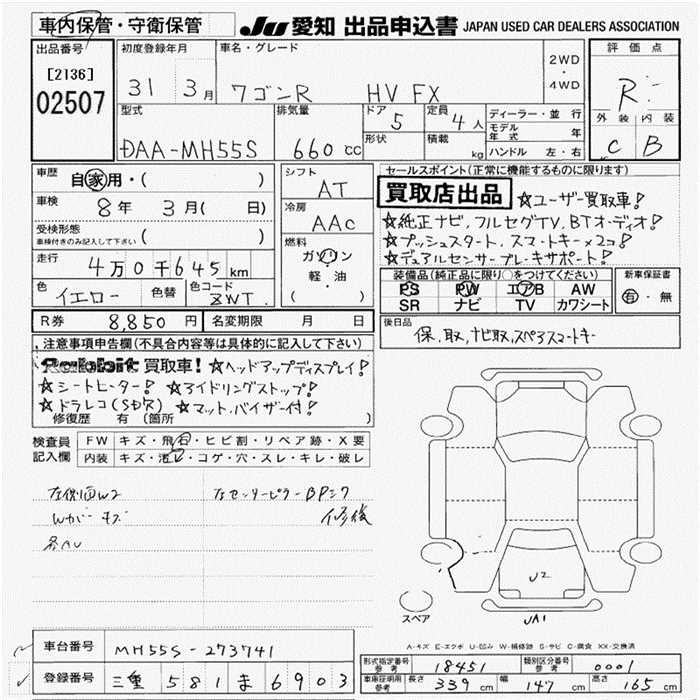 車内保管・守衛保管
JU 愛知 出品申込書 JAPAN USED CAR DEALERS ASSOCIATION
出品番号
[2136]
02507
初度登録年月
31 3月
車名・グレード
ワゴンR HV FX
2WD
・
4WD
評価点
R
外装 内装
C B
型式
DAA-MH55S
排気量
660cc
ドア
5
形状
定員
4人
積載
kg
ディーラー・並行
モデル年式 年
ハンドル 左・右
車歴
自家用・( )
車検
8年 3月( 日)
受検形態
車検付きのみ記入して下さい ( )
走行
4万0千645km
色
イエロー 色替
色コード
ZWT
シフト
AT
冷房
AAC
燃料
ガソリン
軽・油
( )
セールスポイント(正常に機能するものに限ります)
買取店出品 ☆ユーザー買取車!
☆純正ナビ、フルセグTV、BTオーディオ!
☆プッシュスタート、スマートキー×2コ!
☆デュアルセンサーブレーキサポート!
装備品(純正品に限り○をつけてください)
PS PW エアB AW
SR ナビ TV カワシート
新車保証書
有・無
R券 8,850円 名変期限 月 日
後日品
保、取、ナビ取、スペアスマートキー
注意事項申告欄(不具合内容等は具体的に記入して下さい)
Rabbit 買取車! ☆ヘッドアップディスプレイ!
☆シートヒーター! ☆アイドリングストップ!
☆ドラレコ(S切欠) ☆マット、バイザー付!
修復歴 有 (箇所 )
検査員記入欄
FW キズ・飛石・ヒビ割・リペア跡・X要
内装 キズ・汚レ・コゲ・穴・スレ・キレ・破レ
左側面W2 左センターピラーBPニク
Wガーキズ 修後
各AU
U2
UA1
スペア
A-キズ E-エクボ U-凹み W-補修跡 S-サビ C-腐食 XX-交換済
車台番号 MH55S-273741
登録番号 三重 581 ま 6903
形式指定番号 参考 18451 類別区分番号 参考 0001
車庫証明用 参考 長さ 339cm 幅 147cm 高さ 165cm